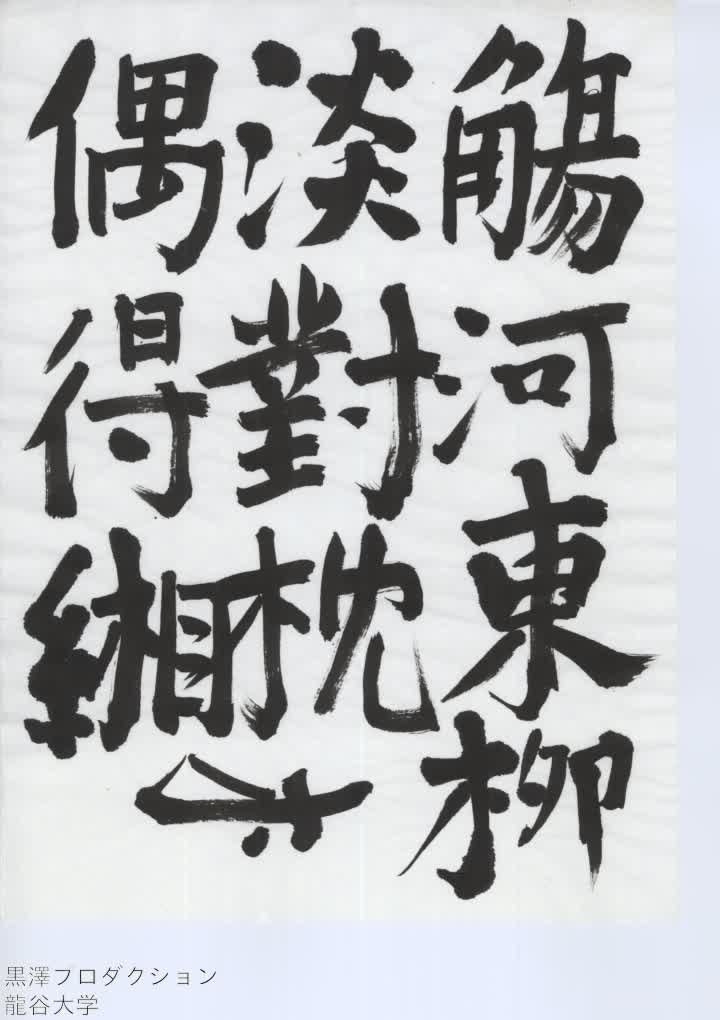 觴河東柳
淡對枕
偶得緗
黒澤プロダクション
龍谷大学